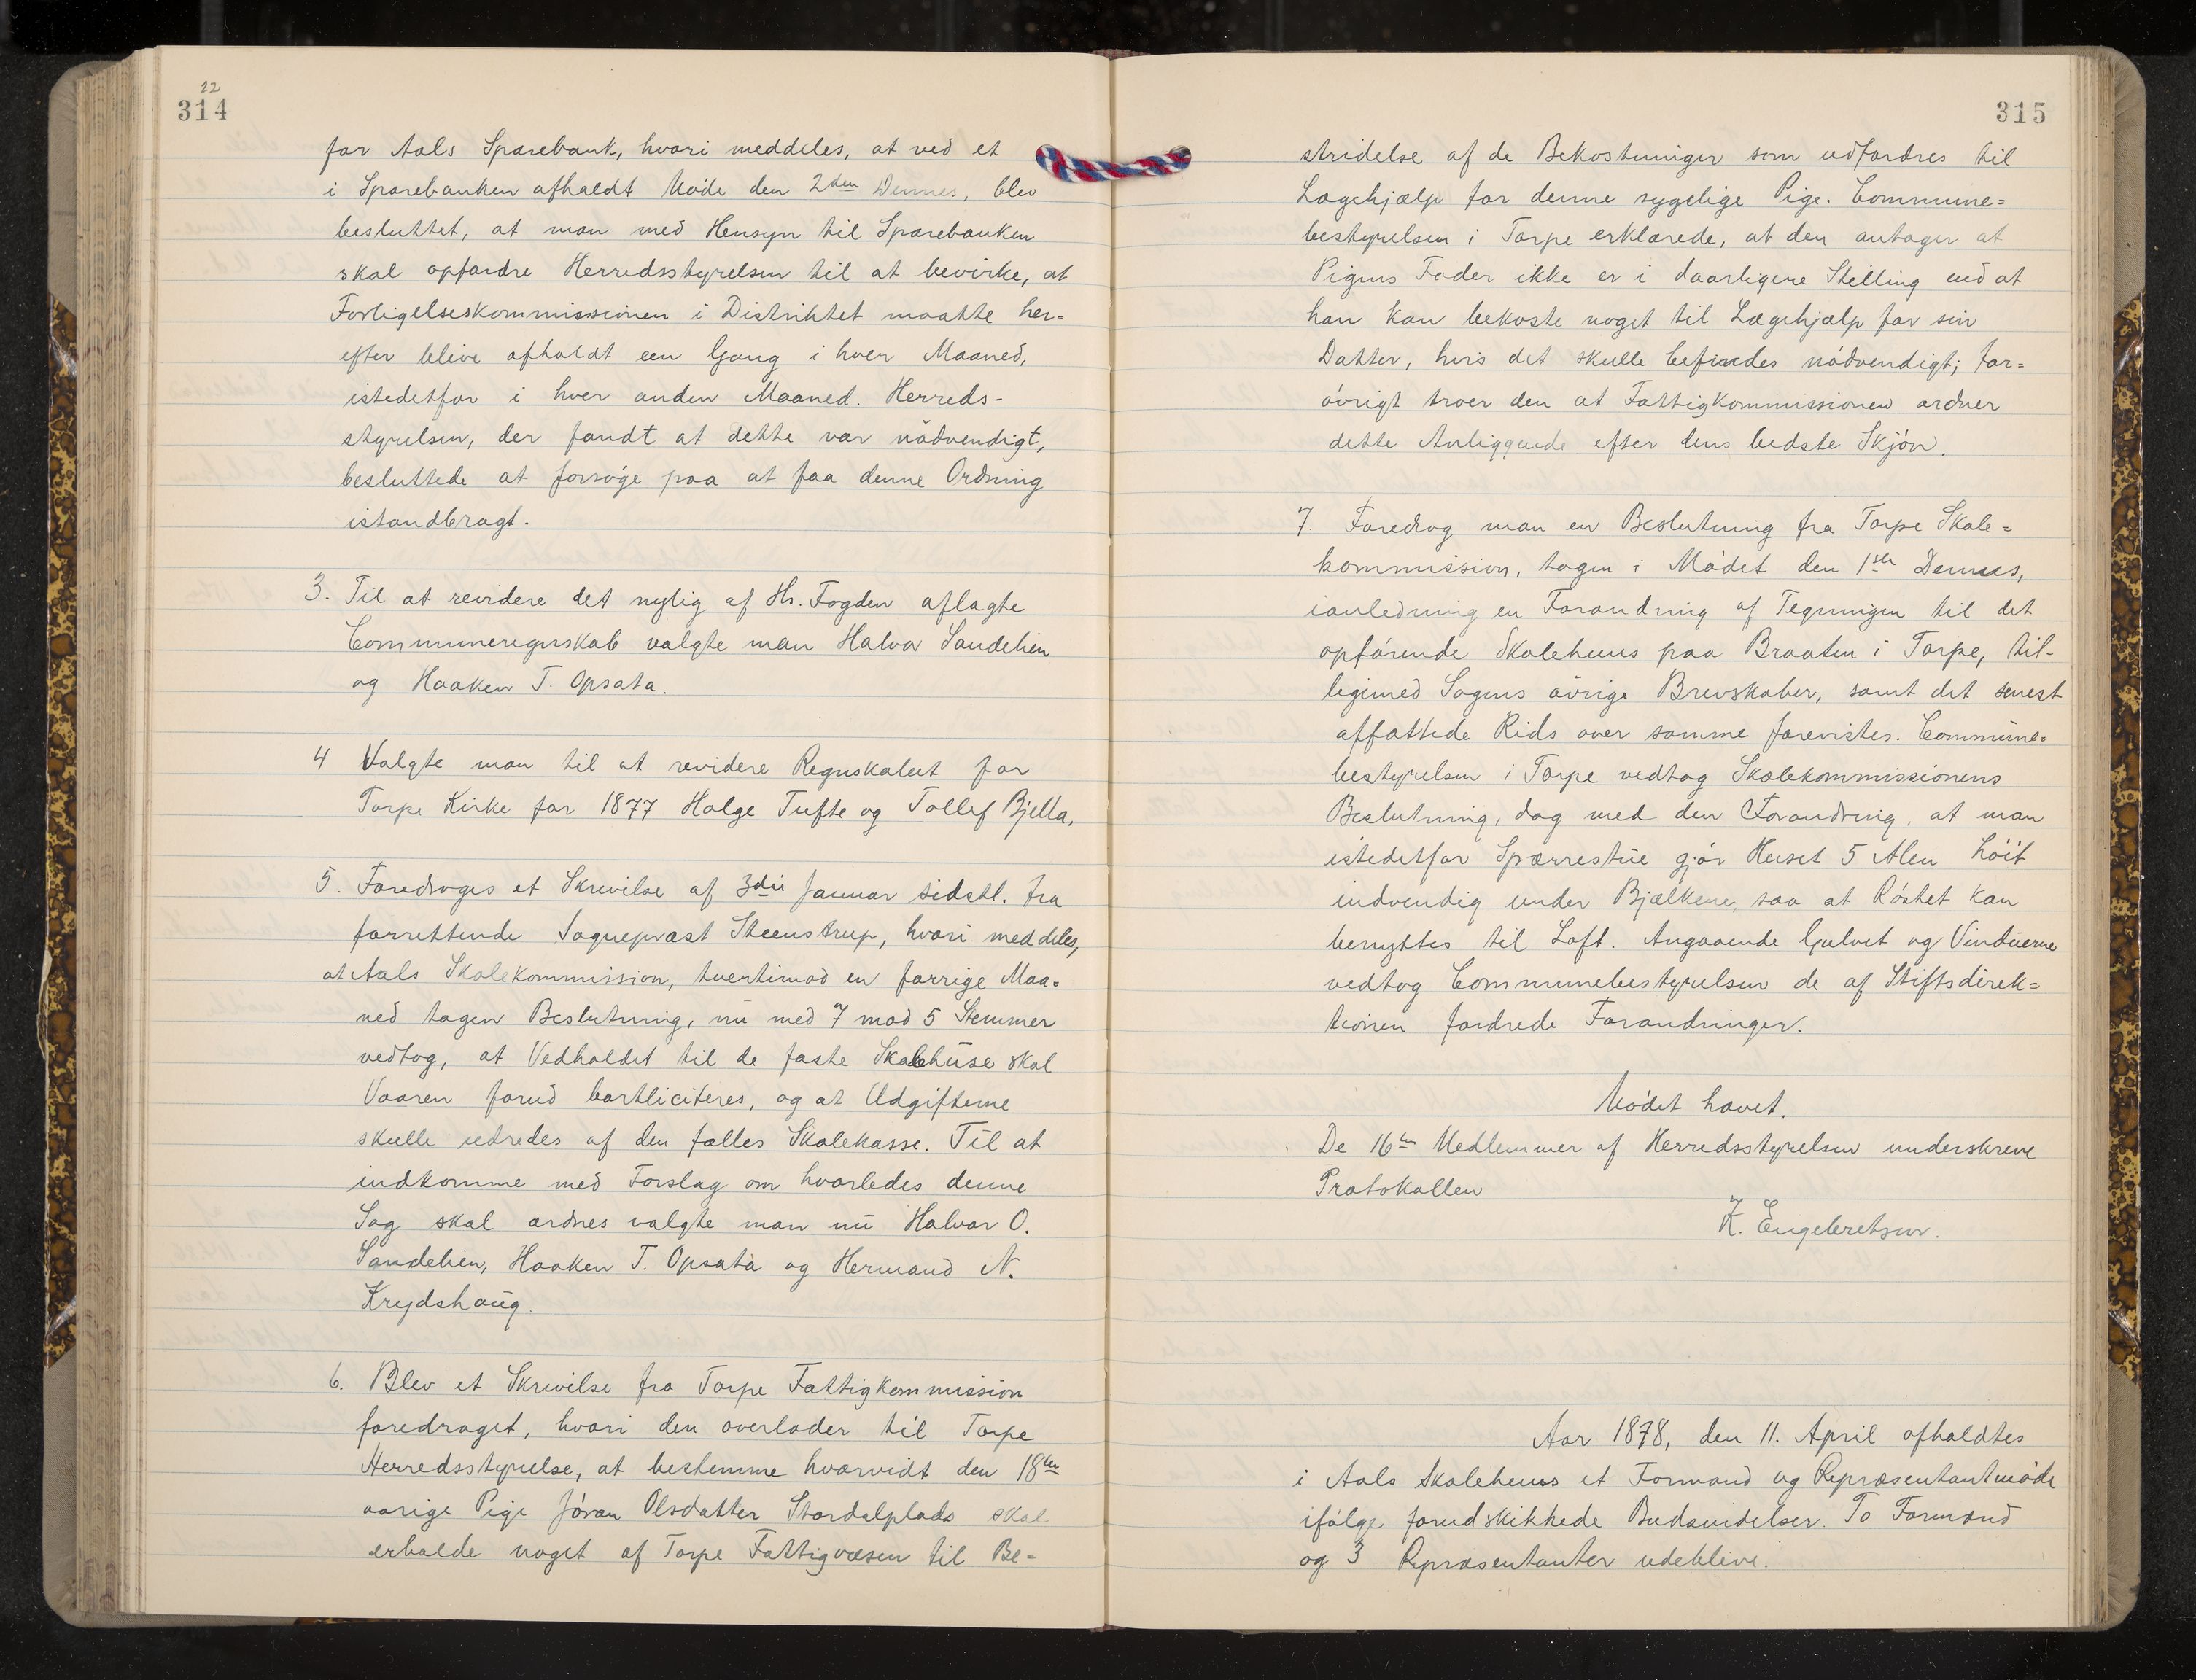 22
314
for Aals Sparebank, hvori meddeles, at ved et
i Sparebanken afholdt Møde den 2den Dennes, blev
besluttet, at man med Hensyn til Sparebanken
skal opfordre Herredsstyrelsen til at bevirke, at
Forligelseskommissionen i Distriktet maatte her=
efter blive afholdt een Gang i hver Maaned,
istedetfor i hver anden Maaned. Herreds-
styrelsen, der fandt at dette var nødvendigt,
besluttede at forsøge paa at faa denne Ordning
istandbragt.
3. Til at revidere det nylig af Hr. Fogden aflagte
Communeregnskab valgte man Halvor Sandelien
og Haaken T. Opsata.
4 Valgte man til at revidere Regnskabet for
Torpe Kirke for 1877 Holge Tufte og Tollef Bjella.
5. Foredroges et Skrivelse af 3die Januar sidstl. fra
forrettende Sogneprast Steenstrup, hvori meddeles,
at Aals Skolekommission, tvertimod en forrige Maa=
ned tagen Beslutning, nu med 7 mod 5 Stemmer
vedtog, at Vedholdet til de faste Skolehuse skal
Vaaren forud bortliciteres, og at Udgifterne
skulle udredes af den fælles Skolekasse. Til at
indkomme med Forslag om hvorledes denne
Sag skal ordnes valgte man nu Halvor O.
Sandelien, Haaken T. Opsata og Hermand N.
Krydshaug.
6. Blev et Skrivelse fra Torpe Fattigkommission
foredraget, hvori den overlader til Torpe
Herredsstyrelse, at bestemme hvorvidt den 18ten
aarige Pige Jøran Olsdatter Stordalplads skal
erholde noget af Torpe Fattigvæsen til Be=
315
stridelse af de Bekostninger som udfordres til
Lægehjælp for denne sygelige Pige. Commune=
bestyrelsen i Torpe erklærede, at den antager at
Pigens Fader ikke er i daarligere Stelling end at
han kan bekoste noget til Lægehjælp for sin
Datter, hvis det skulle befindes nødvendigt; for=
øvrigt troer den at Fattigkommissionen ordner
dette Anliggende efter dens bedste Skjøn.
7. Foredrog man en Beslutning fra Torpe Skole=
kommission, tagen i Mødet den 1ste Dennes,
ianledning en Forandring af Tegningen til det
opførende Skolehuus paa Braaten i Torpe, til-
ligemed Sagens øvrige Brevskaber, samt det senest
affattede Rids over samme forevistes. Commune=
bestyrelsen i Torpe vedtog Skolekommissionens
Beslutning, dog med den Forandring, at man
istedetfor Sparrestue gjør Huset 5 Alen høit
indvendig under Bjælkene, saa at Røstet kan
benyttes til Loft. Angaaende Gulvet og Vinduerne
vedtog Communebestyrelsen de af Stiftsdirek=
tionen fordrede Forandringer.
Mødet hævet.
De 16ten Medlemmer af Herredsstyrelsen underskreve
Protokollen
K. Engebretsen.
Aar 1878, den 11. April afholdtes
i Aals Skolehuus et Formand og Repræsentantmøde
ifølge forudskikkede Budsendelser. To Formænd
og 3 Repræsentanter udeblive.